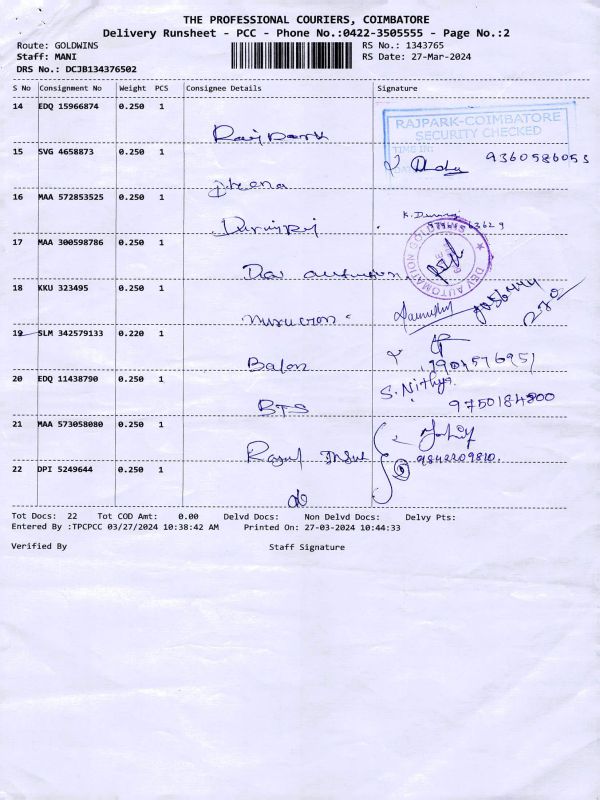 THE PROFESSIONAL COURIERS, COIMBATORE
Delivery Runsheet - PCC - Phone No.:0422-3505555 - Page No.:2
Route: GOLDWINS RS No.: 1343765
Staff: MANI RS Date: 27-Mar-2024
DRS No.: DCJB134376502
S No Consignment No Weight PCS Consignee Details Signature
14 EDQ 15966874 0.250 1
Rajpark
RAJPARK-COIMBATORE
SECURITY CHECKED
TIME IN:
15 SVG 4658873 0.250 1
9360586053
16 MAA 572853525 0.250 1
17 MAA 300598786 0.250 1
Dev automation
DEV AUTOMATION
18 KKU 323495 0.250 1
19 SLM 342579133 0.220 1
Balon
7904576951
20 EDQ 11438790 0.250 1
BTS
S. Nithya.
9750184800
21 MAA 573058080 0.250 1
9842209810.
22 DPI 5249644 0.250 1
do
Tot Docs: 22 Tot COD Amt: 0.00 Delvd Docs: Non Delvd Docs: Delvy Pts:
Entered By :TPCPCC 03/27/2024 10:38:42 AM Printed On: 27-03-2024 10:44:33
Verified By Staff Signature